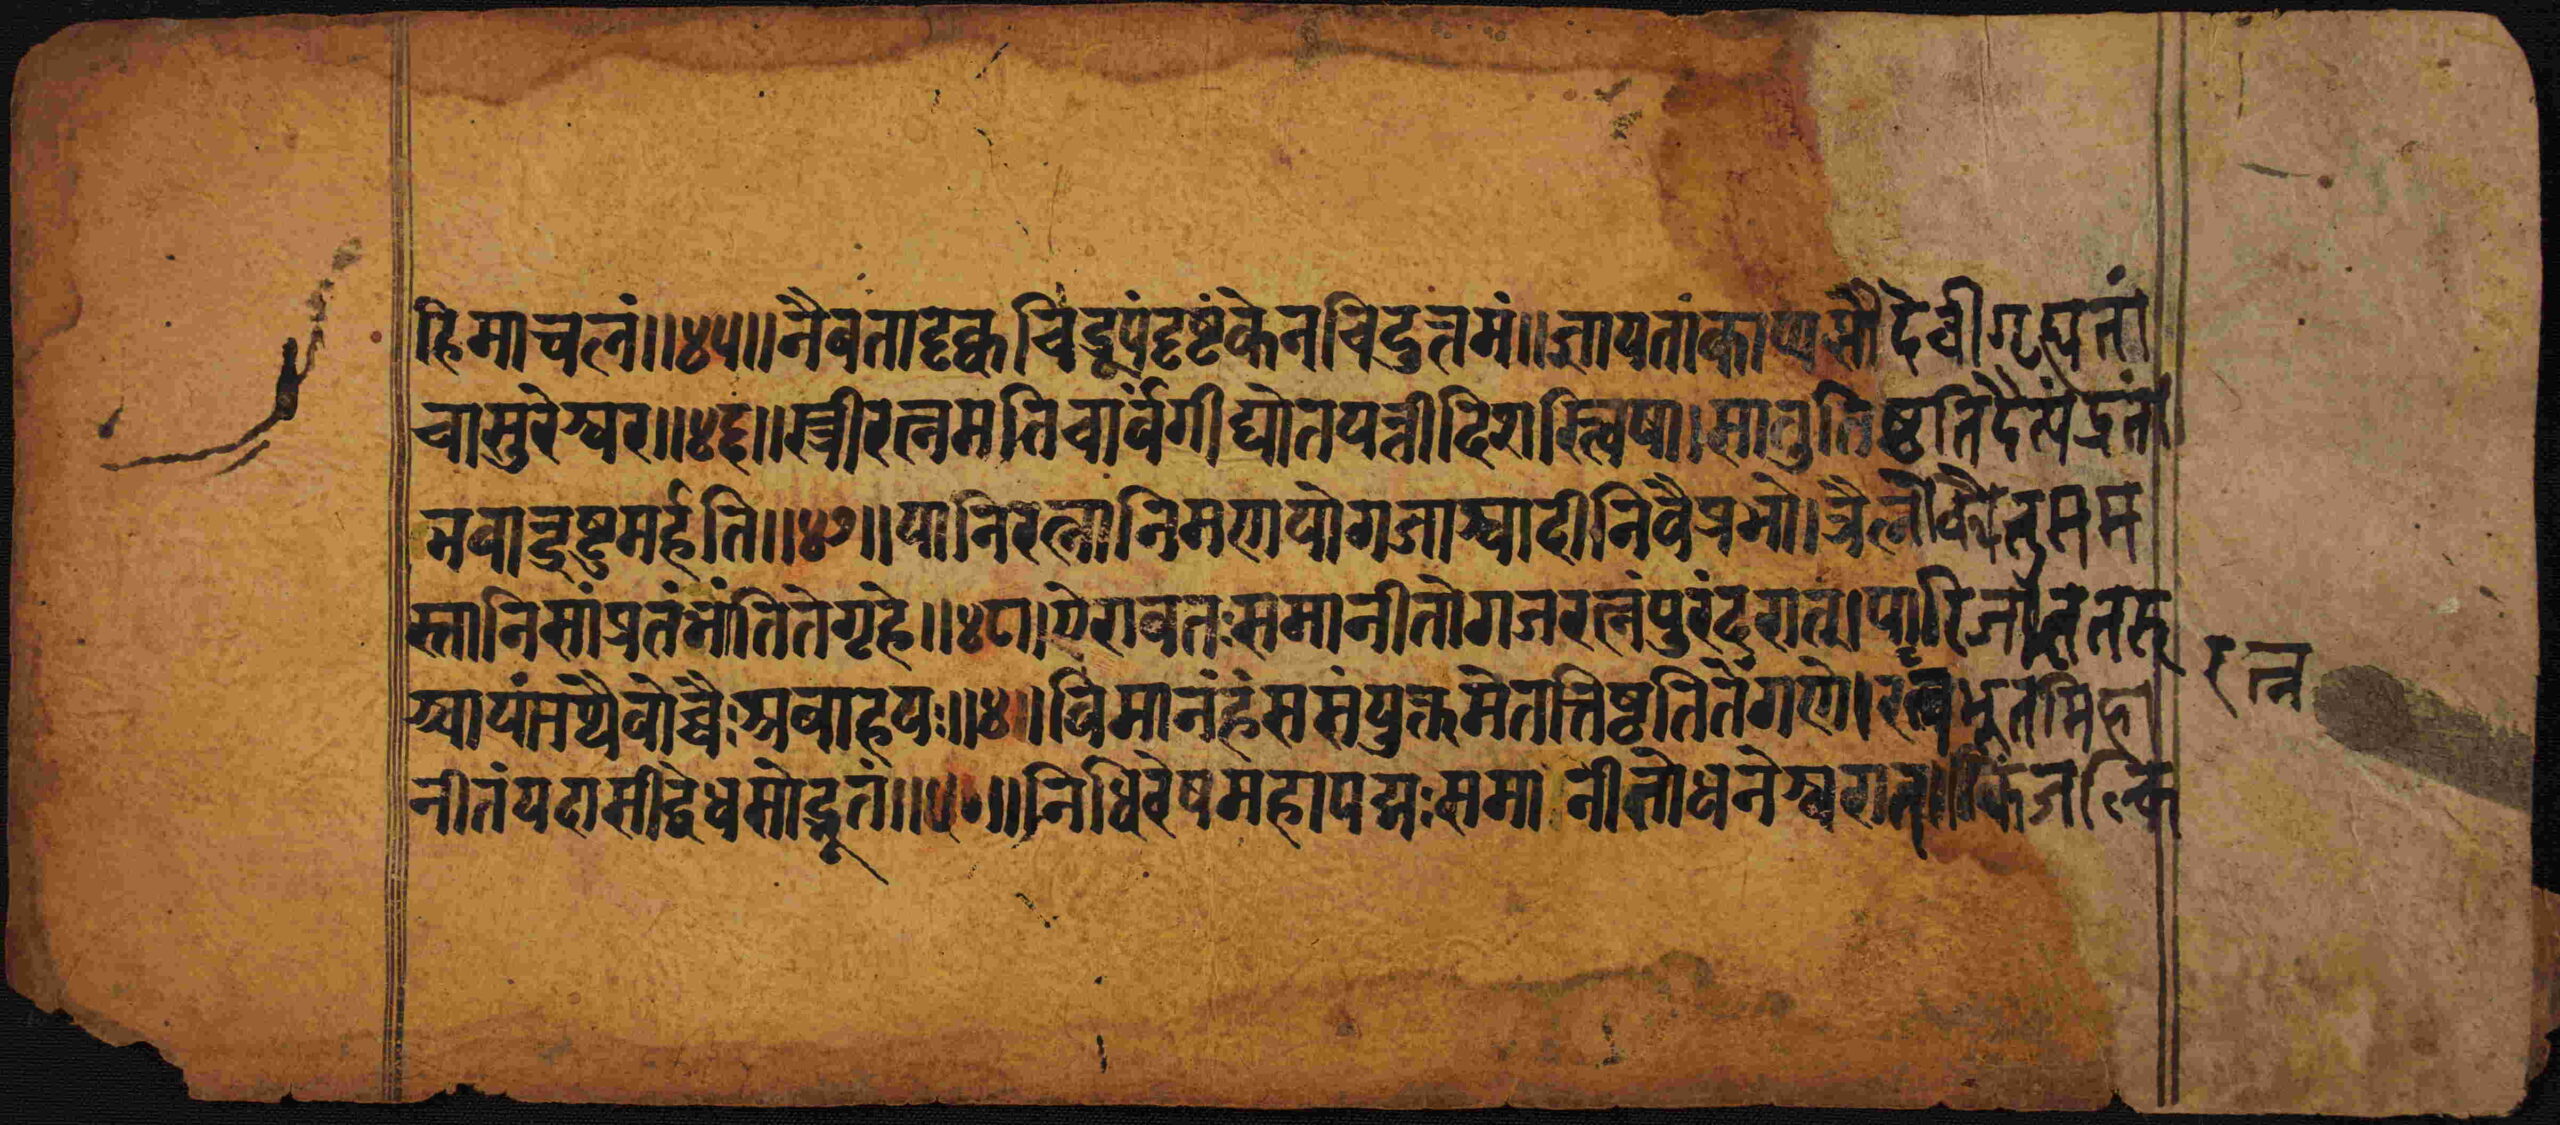 हिमाचलं॥॥४५॥॥नैवतादृक्वचिद्रूपंदृष्टंकेनचिदुत्तमं॥ज्ञायतांकाप्यसौदेवीगृह्यतां
चासुरेश्वर॥॥४६॥॥स्त्रीरत्नमतिचार्वंगीद्योतयन्तीदिशस्त्विषा।सातुतिष्ठतिदैत्येंद्रतां
भवान्द्रष्टुमर्हति॥॥४७॥॥यानिरत्नानिमणयोगजाश्वादीनिवैप्रभो।त्रैलोक्येतुसमस
स्तानिसांप्रतंभांतितेगृहे॥॥४८॥ऐरावतःसमानीतोगजरत्नंपुरंदरात्।पारिजाततरु
श्चायंतथैवोच्चैःश्रवाहयः॥॥४॥॥विमानंहंससंयुक्तमेतत्तिष्ठतितेंगणे।रत्नभूतमिहा
रत्न
नीतंयदासीद्वेधसोद्भूतं॥॥५०॥॥निधिरेषमहापद्मःसमानीतोधनेश्वरात्॥किंजल्कि